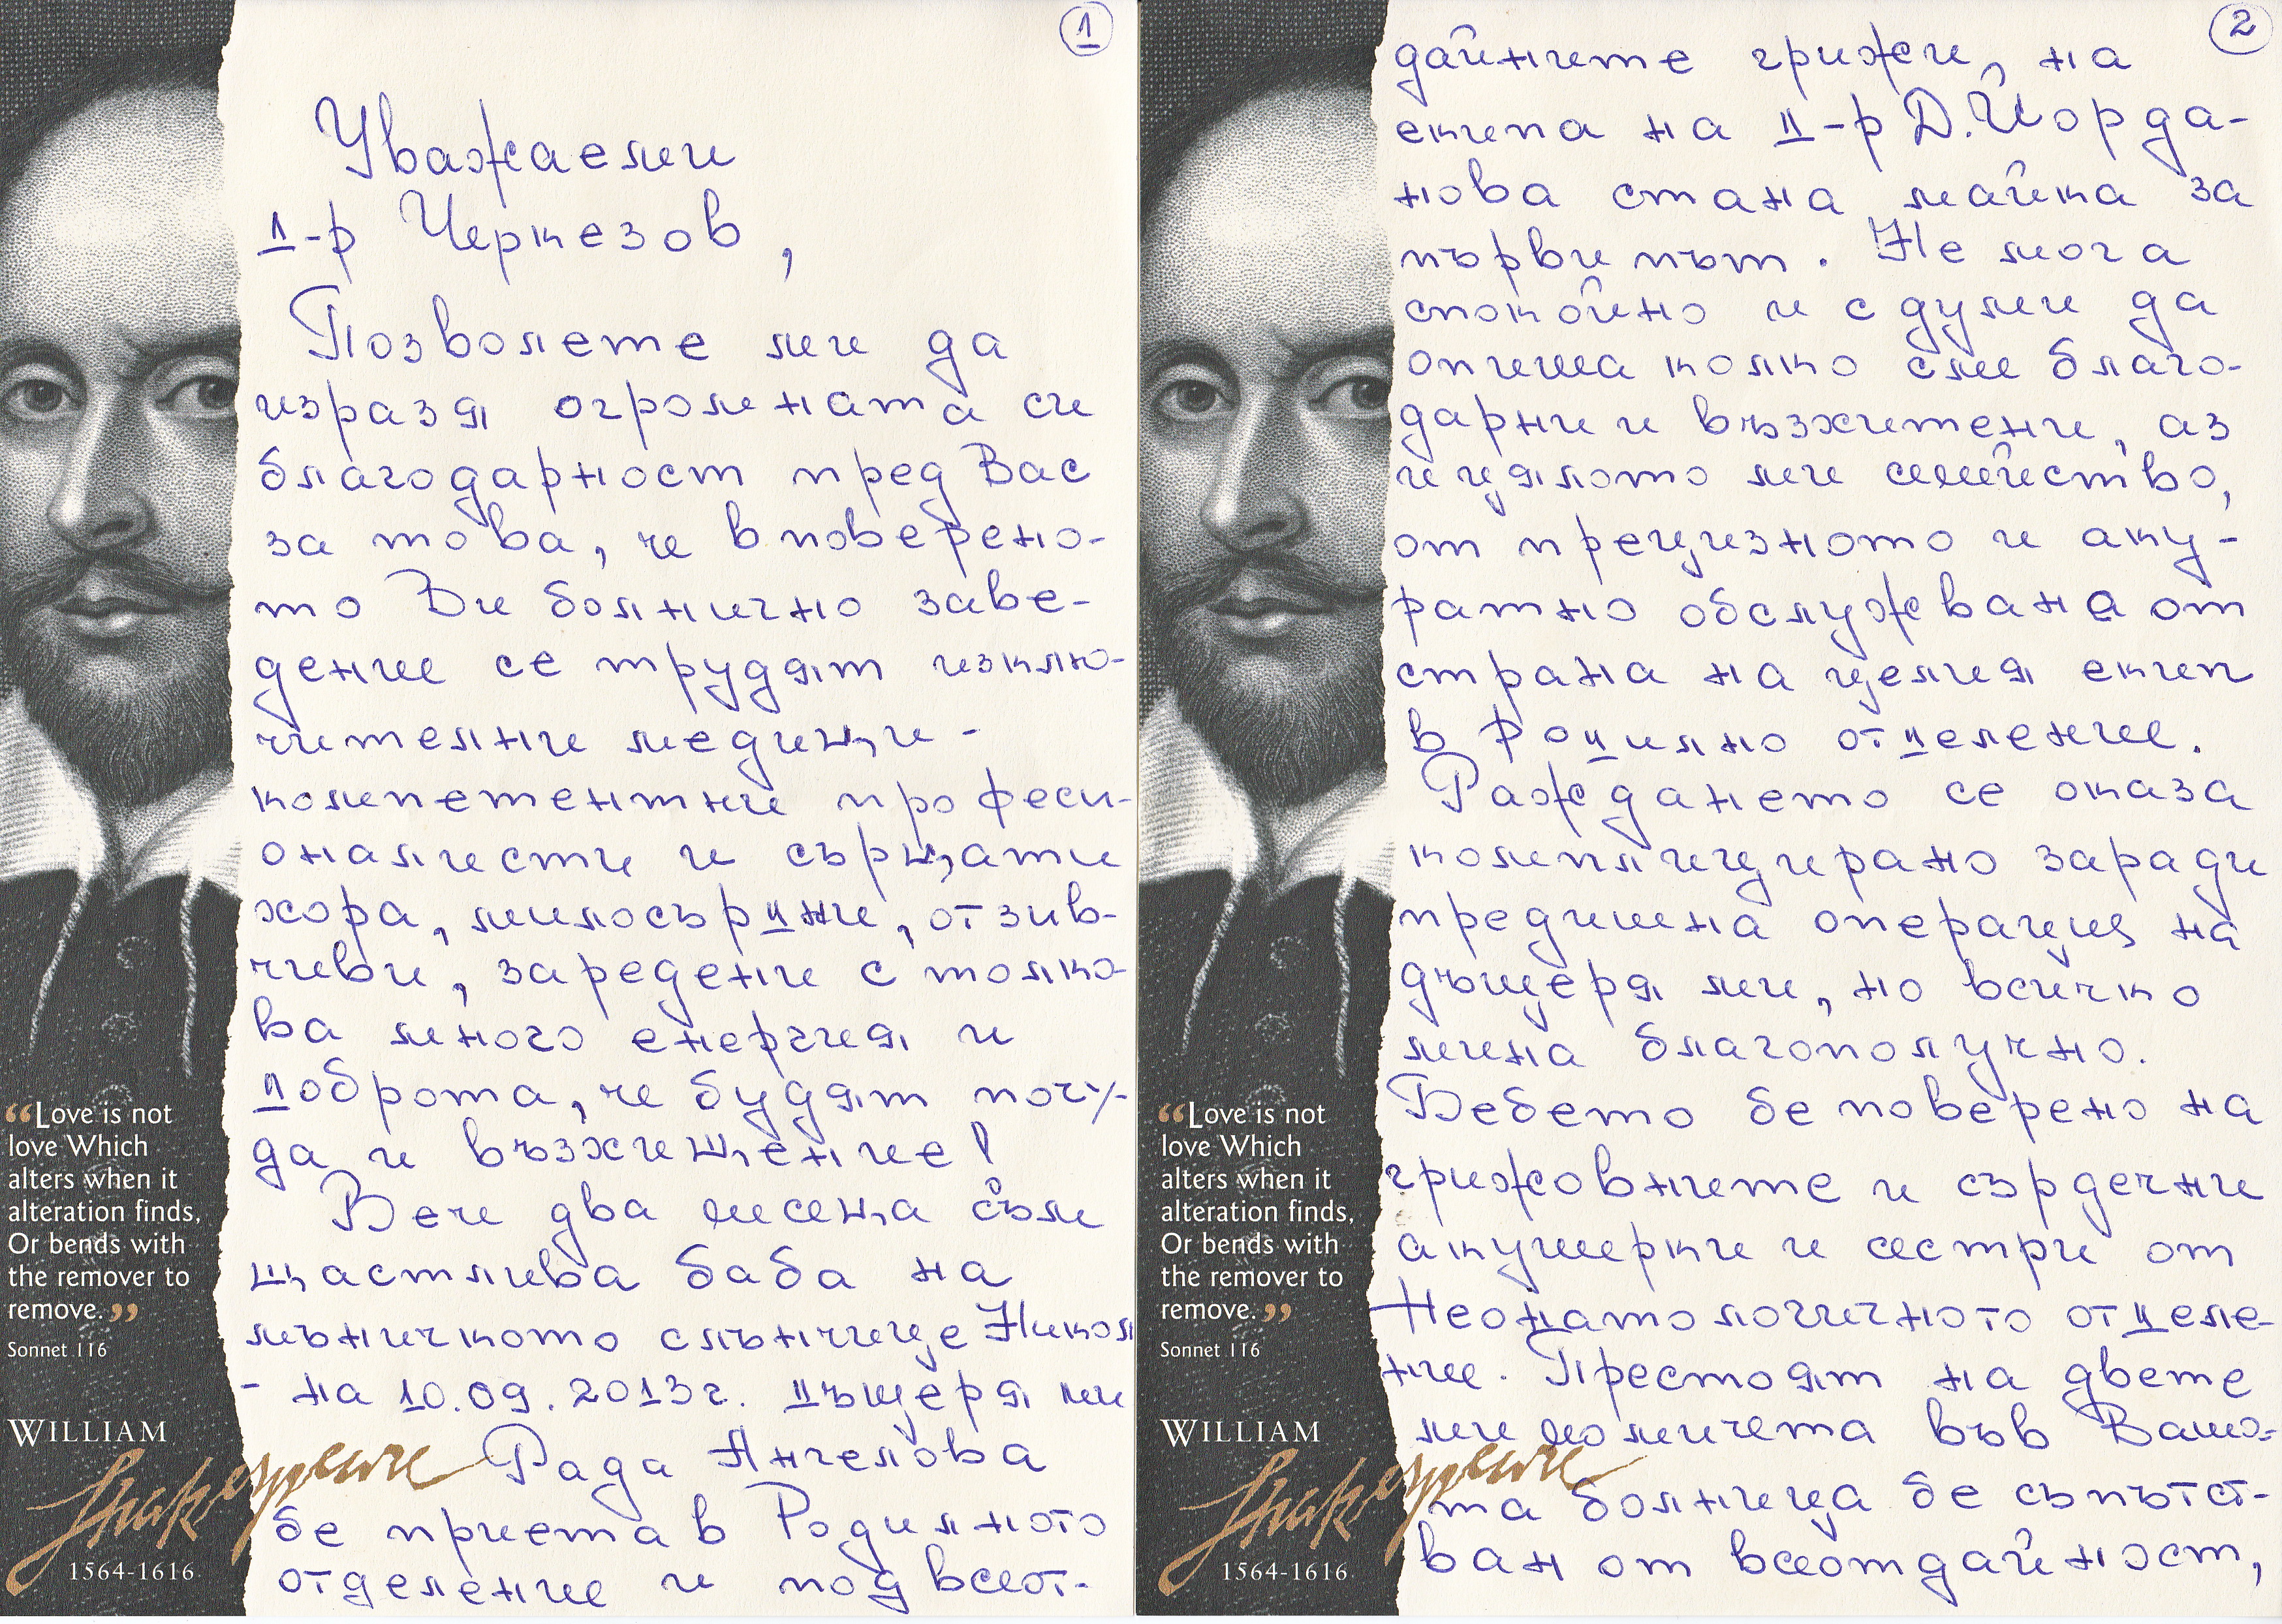 1
Уважаеми
д-р Черкезов,
Позволете ми да
изразя огромната си
благодарност пред Вас
за това, че в повере­но-
то Ви болнично заве-
дение се трудят изклю-
чителни медици -
компетентни професи-
оналисти и сърцати
хора, милосърдни, отзив-
чиви, заредени с толко-
ва много енергия и
доброта, че будят почу-
да и възхищение!
Вече два месеца съм
щастлива баба на
мъничкото слънчице Никол
- на 10.09.2013г. дъщеря ми
Рада Ангелова
бе приета в Родилното
отделение и под всеот-
“Love is not
love Which
alters when it
alteration finds,
Or bends with
the remover to
remove.”
Sonnet 116
WILLIAM
Shakespeare
1564-1616
2
дайните грижи, на
екипа на д-р Д. Йорда-
нова стана майка за
първи път. Не мога
спокойно и с думи да
опиша колко сме благо-
дарни и възхитени, аз
и цялото ми семейство,
от прецизното и аку-
ратно обслужване от
страна на целия екип
в Родилно отделение.
Раждането се оказа
комплицирано заради
предишна операция на
дъщеря ми, но всичко
мина благополучно.
Бебето бе поверено на
грижовните и сърдечни
акушерки и сестри от
Неонатологичното отделе-
ние. Престоят на двете
ми момичета във Ваша-
та болница бе съпътст-
ван от всеотдайност,
“Love is not
love Which
alters when it
alteration finds,
Or bends with
the remover to
remove.”
Sonnet 116
WILLIAM
Shakespeare
1564-1616